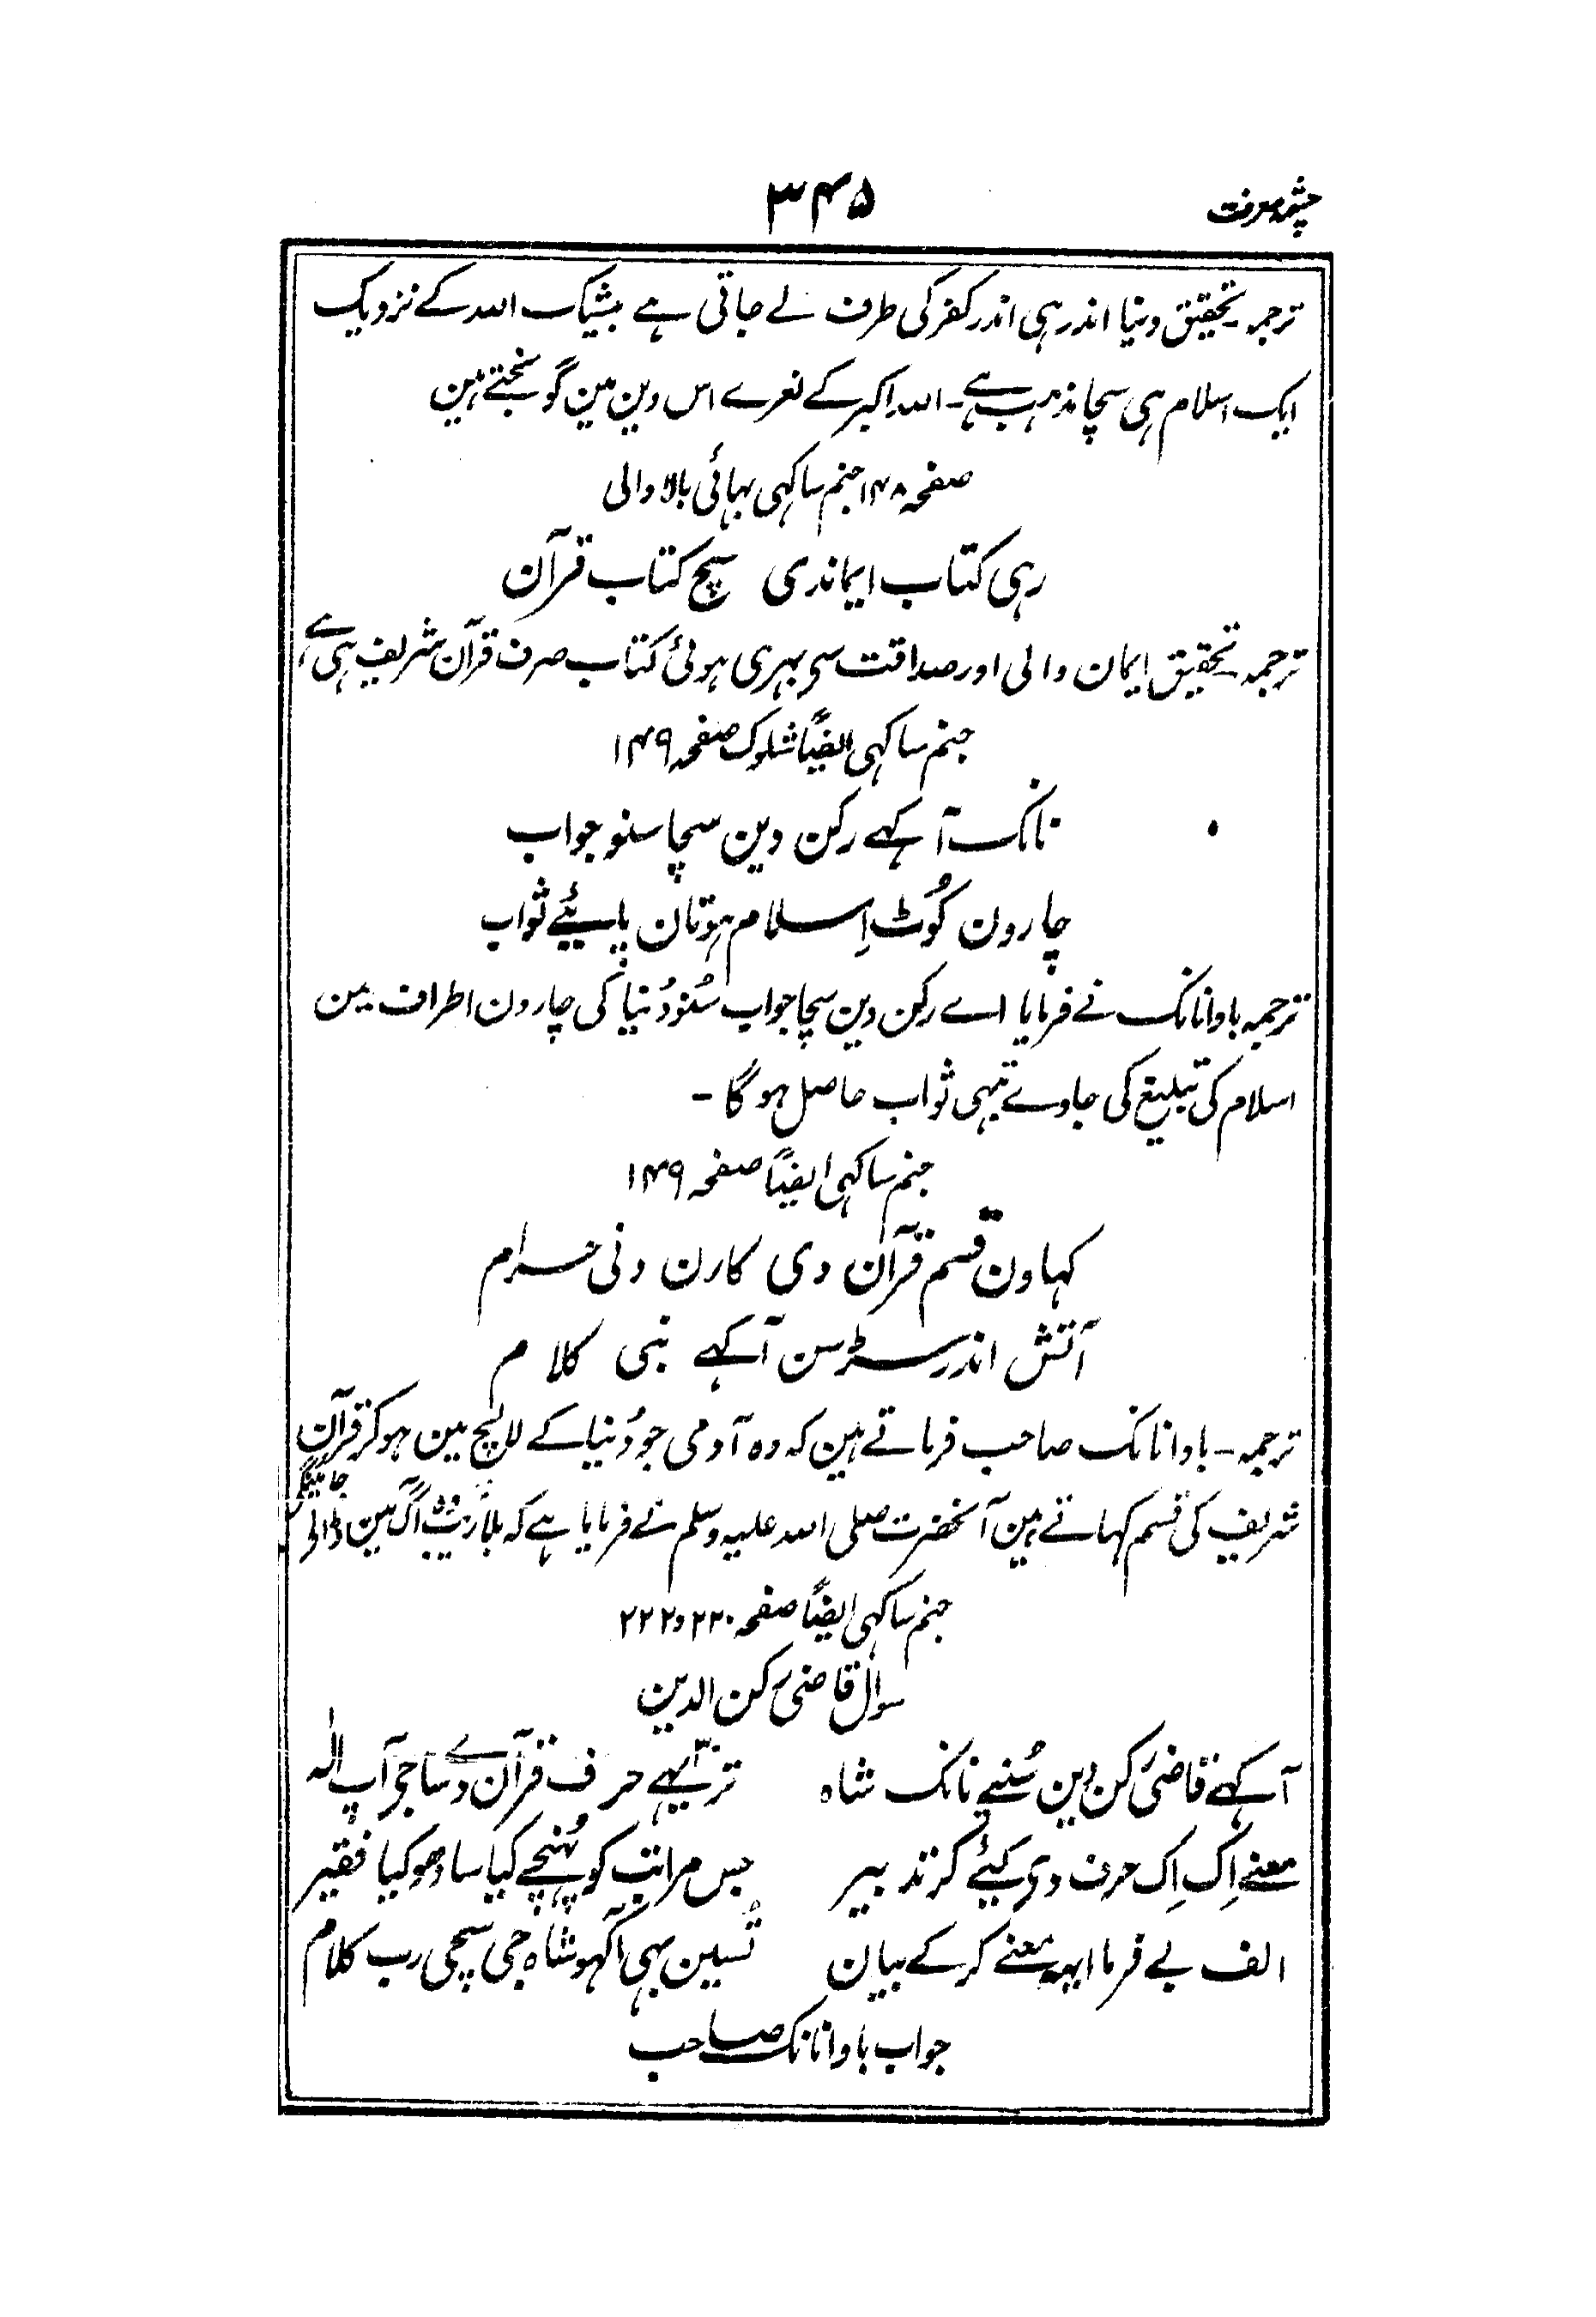 چشمہ معرفت
۳۴۵
ترجمہ۔ تحقیق دنیا اندر ہی اندر کفر کی طرف لے جاتی ہے بیشک اللہ کے نزدیک
ایک اسلام ہی سچا مذہب ہے۔ اللہ اکبر کے نعرے اس دین مین گونجتے ہین
صفحہ ۱۴۸ جنم ساکہی بہائی بالا والی
رہی کتاب ایماندی سچ کتاب قرآن
ترجمہ تحقیق ایمان والی اور صداقت سے بہری ہوئی کتاب صرف قرآن شریف ہی ہے
جنم ساکہی ایضاً شلوک صفحہ ۱۴۹
نانک آکہے رکن دین سچا سنو جواب
چارون کُوٹ اِسلام ہو تان پایئے ثواب
ترجمہ باوا نانک نے فرمایا اے رکن دین سچا جواب سُنو دُنیا کی چارون اطراف مین
اسلام کی تبلیغ کی جاوے تبہی ثواب حاصل ہوگا۔
جنم ساکہی ایضاً صفحہ ۱۴۹
کہاون قسم قرآن دی کارن دنی حرام
آتش اندر سڑسن آکہے نبی کلام
ترجمہ۔ باوا نانک صاحب فرماتے ہین کہ وہ آدمی جو دُنیا کے لالچ مین ہو کر قرآن
شریف کی قسم کہاتے ہین آنحضرت صلی اللہ علیہ وسلم نے فرمایا ہے کہ بلاریب وہ آگ مین ڈالے جائینگے
جنم ساکہی ایضاً صفحہ ۲۲۰ و ۲۲۲
سوال قاضی رکن الدین
آکہے قاضی رکن دین سُنیے نانک شاہ تریہے حرف قرآن دے ساجے آپ الٰہ
معنے اِک اِک حرف دی کیئے کر تدبیر جس مراتب کو پہُنچے کیا سادھو کیا فقیر
الف بے فرما ایہہ معنے کر کے بیان تُسین بہی آکہو شاہ جی سچی رب کلام
جواب باوا نانک صاحب